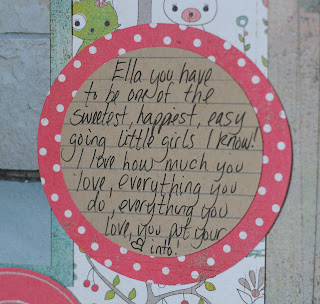 Ella you have
to be one of the
sweetest, happiest, easy
going little girls I know!
I love how much you
love, everything you
do, everything you
love, you put your
♡ into!